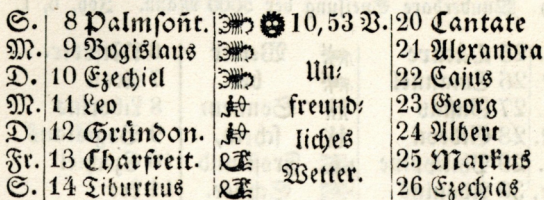 S. 8 Palmsoñt. 10,53 V. 20 Cantate
M. 9 Bogislaus 21 Alexandra
D. 10 Ezechiel Un⸗ 22 Cajus
M. 11 Leo freund⸗ 23 Georg
D. 12 Gründon. liches 24 Albert
Fr. 13 Charfreit. Wetter. 25 Markus
S. 14 Tiburtius 26 Ezechias